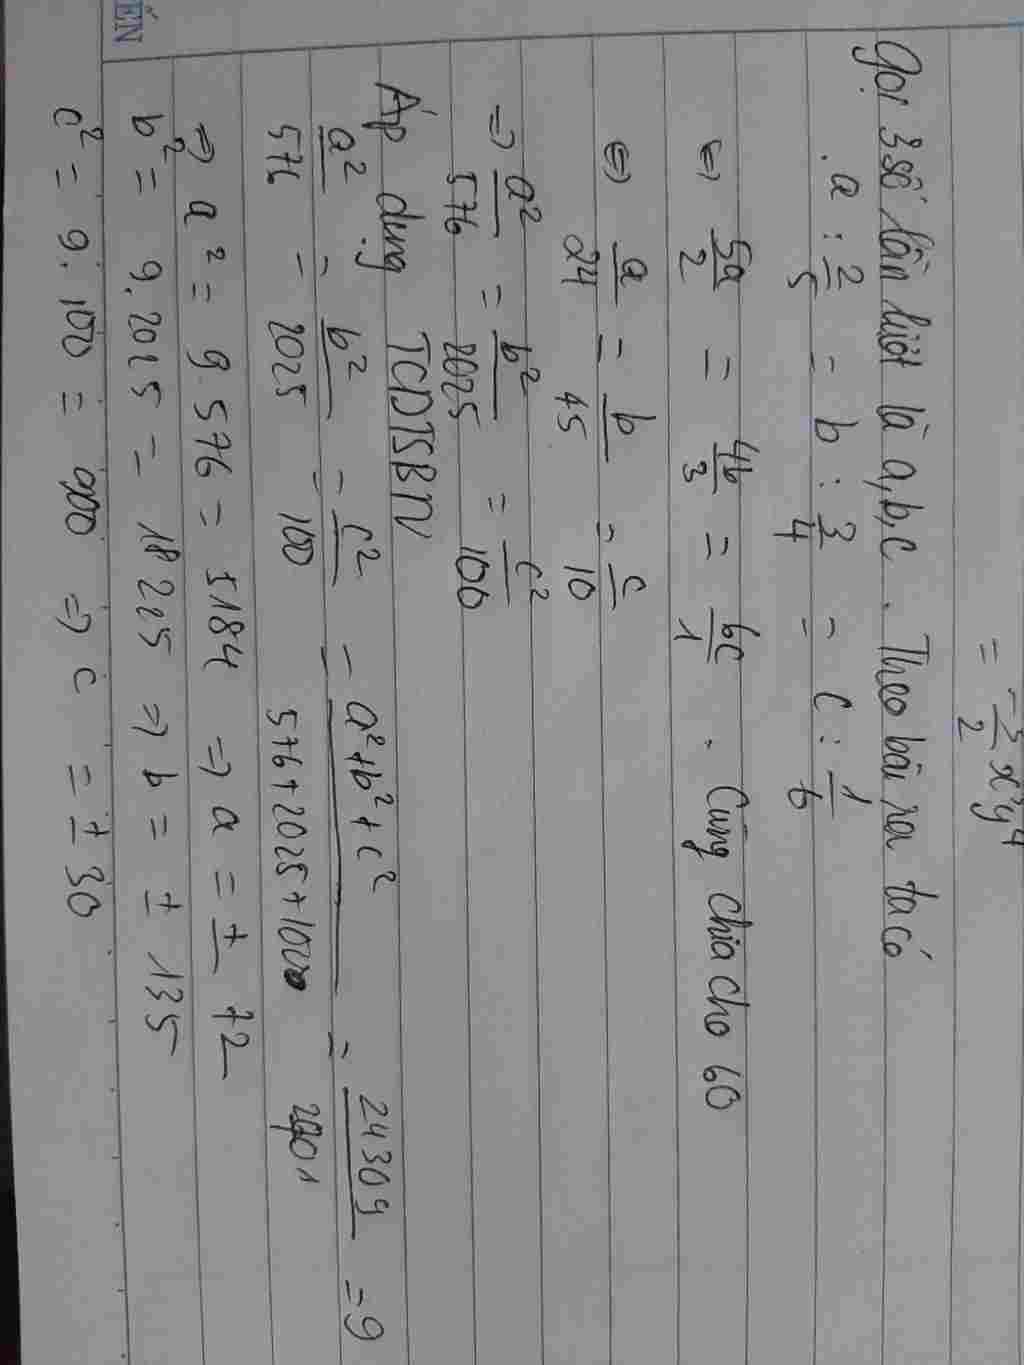 = -3/2 x³y⁴
Gọi 3 số lần lượt là a,b,c . Theo bài ra ta có
a : 2/5 = b : 3/4 = c : 1/6
⇔ 5a/2 = 4b/3 = 6c/1 . Cùng chia cho 60
⇔ a/24 = b/45 = c/10
⇒ a²/576 = b²/2025 = c²/100
Áp dụng TCDTSBN
a²/576 = b²/2025 = c²/100 = a²+b²+c²/576+2025+100 = 24309/2701 = 9
⇒ a² = 9.576 = 5184 ⇒ a = ± 72
b² = 9.2025 = 18225 ⇒ b = ± 135
c² = 9.100 = 900 ⇒ c = ± 30
ẾN